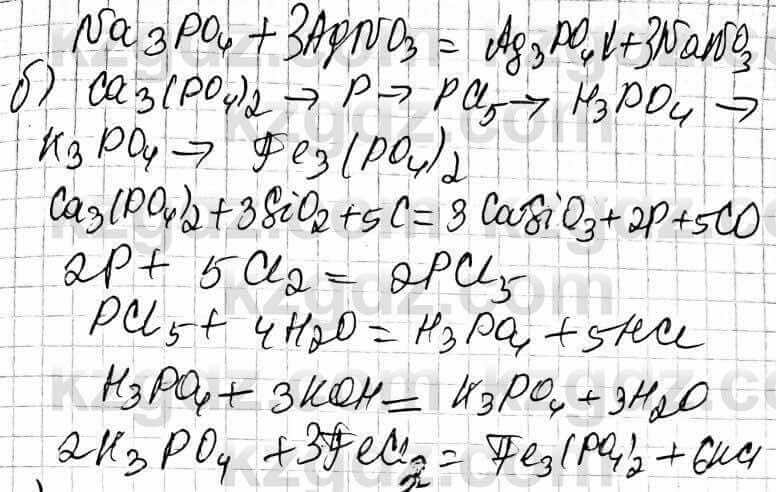 Na₃PO₄ + 3AgNO₃ = Ag₃PO₄↓ + 3NaNO₃
б) Ca₃(PO₄)₂ → P → PCl₅ → H₃PO₄ →
K₃PO₄ → Fe₃(PO₄)₂
Ca₃(PO₄)₂ + 3SiO₂ + 5C = 3CaSiO₃ + 2P + 5CO
2P + 5Cl₂ = 2PCl₅
PCl₅ + 4H₂O = H₃PO₄ + 5HCl
H₃PO₄ + 3KOH = K₃PO₄ + 3H₂O
2K₃PO₄ + 3FeCl₂ = Fe₃(PO₄)₂ + 6KCl